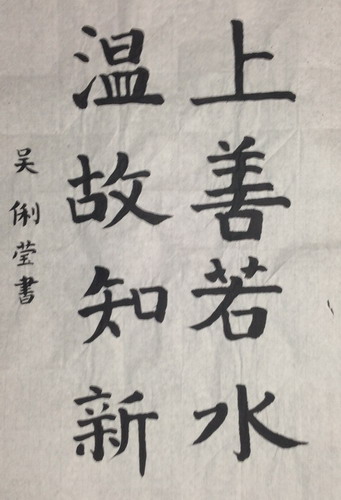 上善若水
温故知新
吴俐莹書